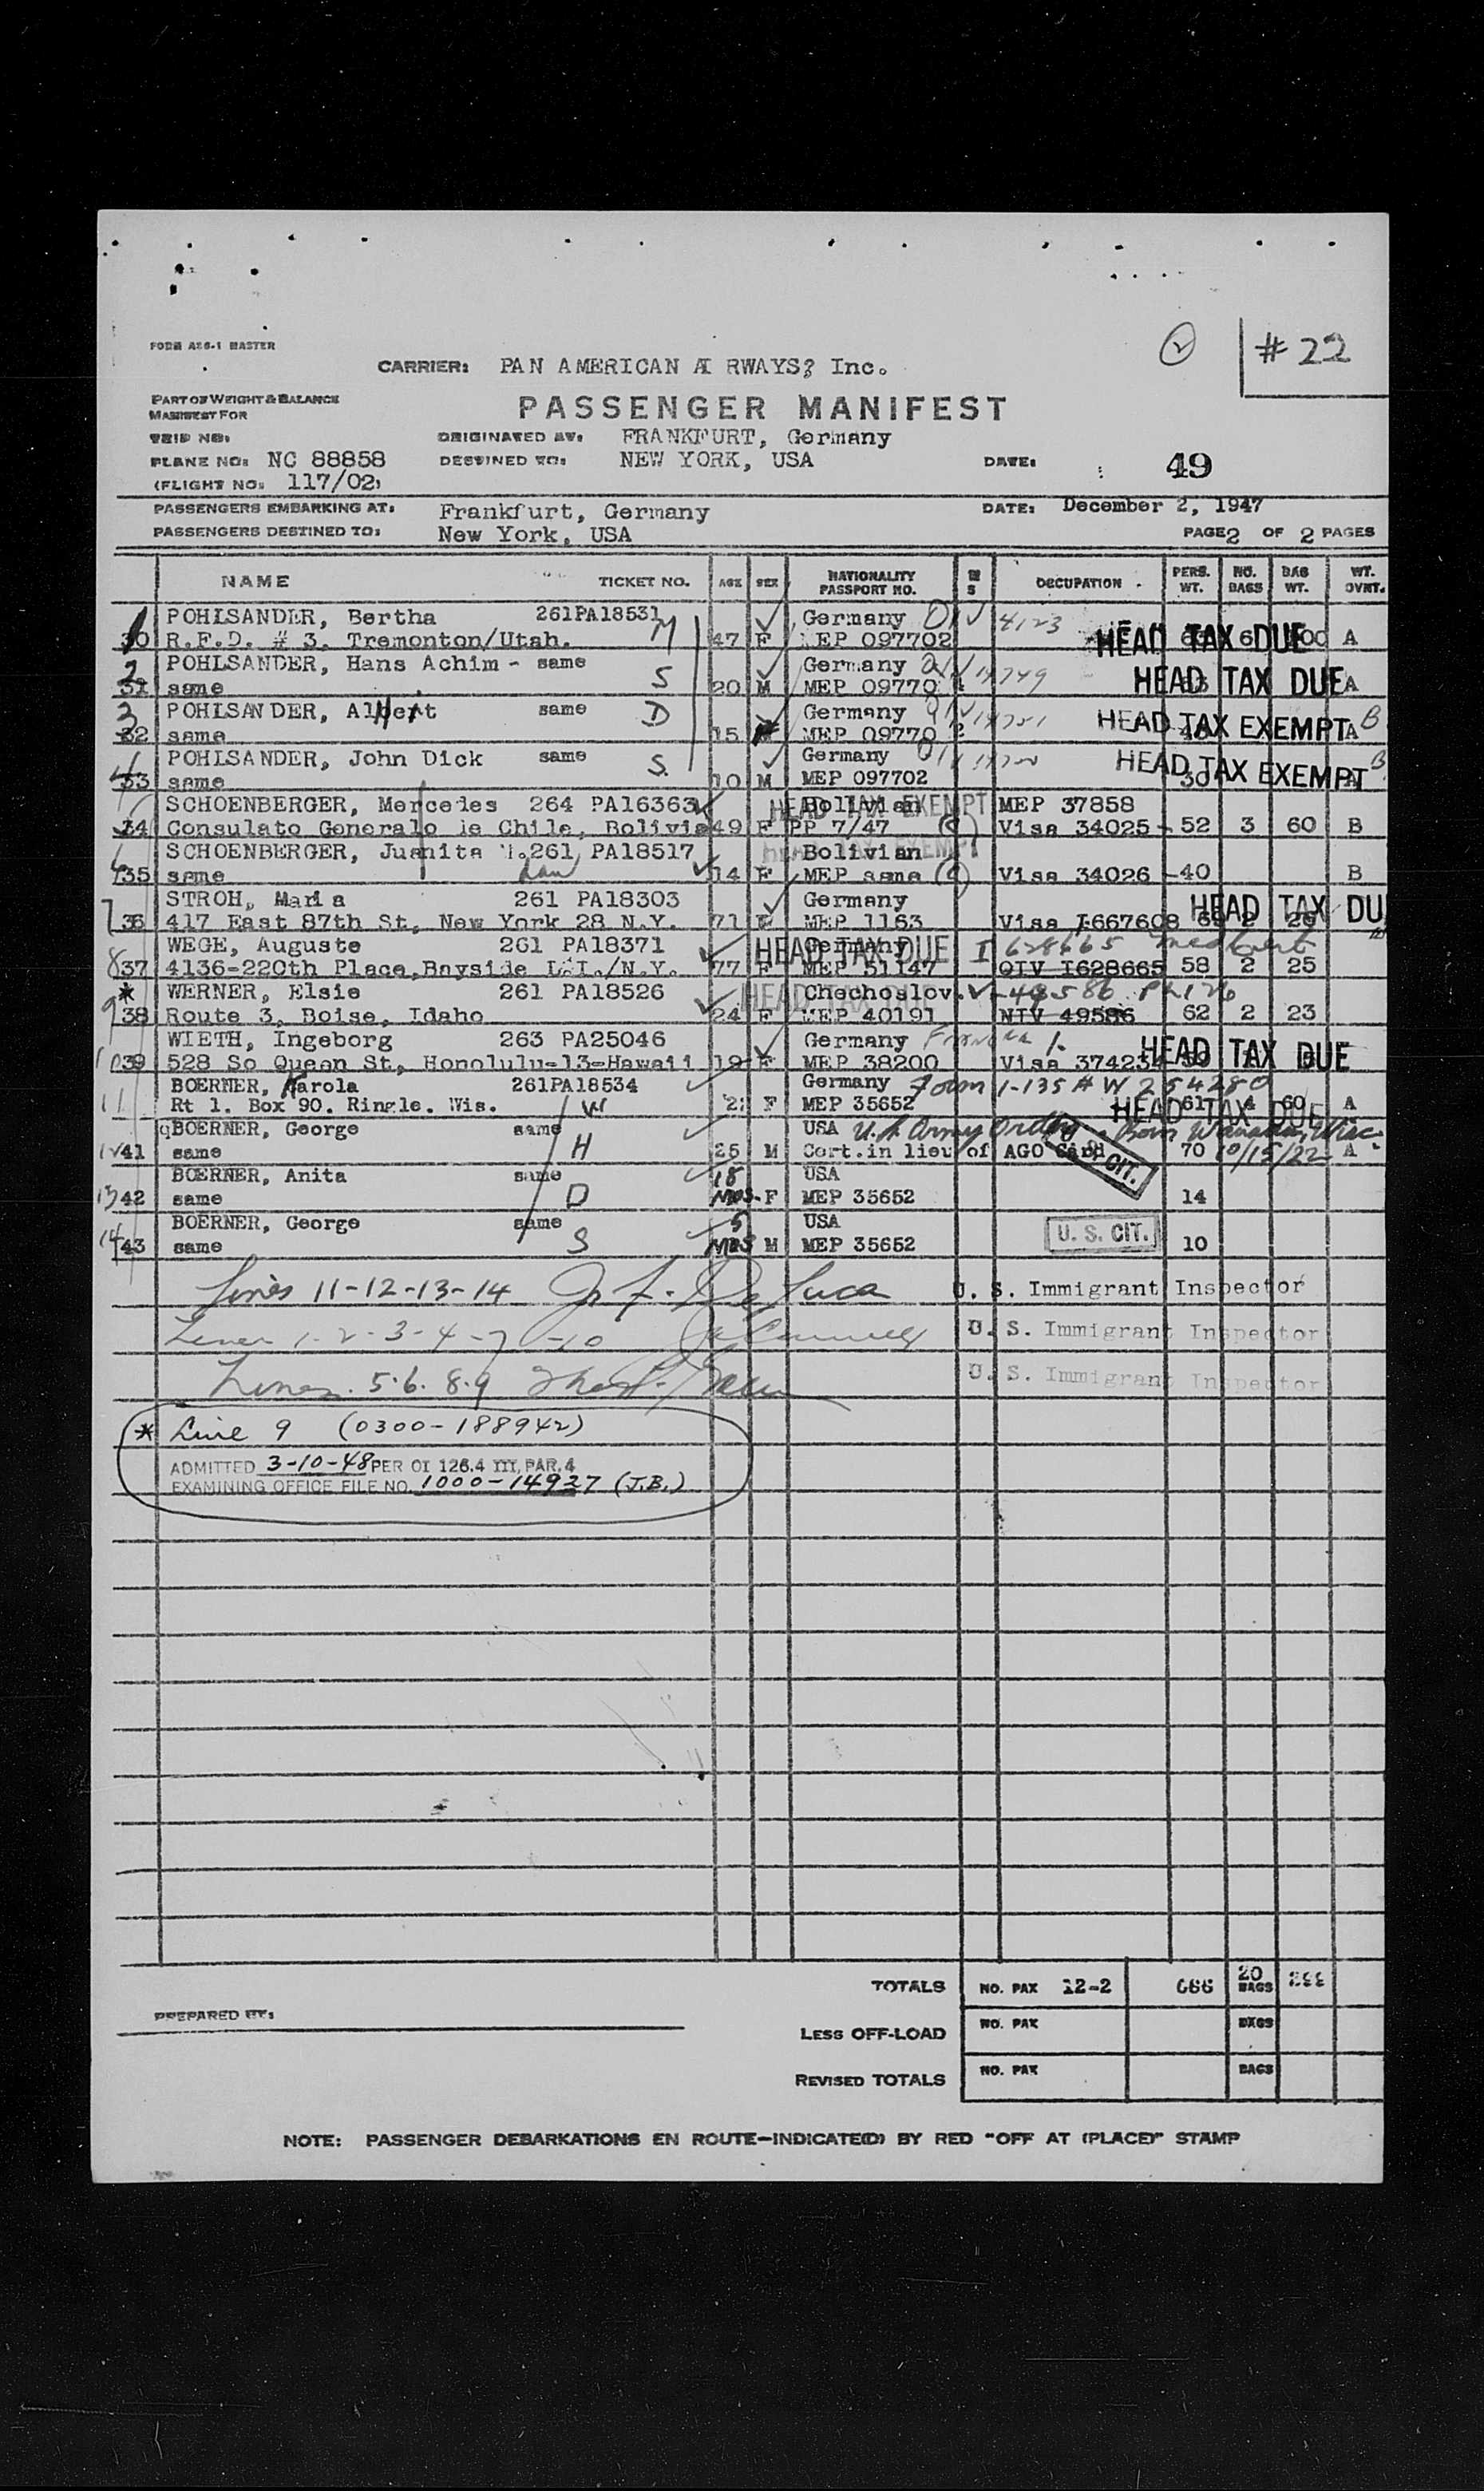 ② # 22
FORM A26-1 MASTER
CARRIER: PAN AMERICAN AI RWAYS? Inc.
PART OF WEIGHT & BALANCE
MANIFEST FOR
PASSENGER MANIFEST
TRIP NO:
ORIGINATED AT: FRANKFURT, Germany
PLANE NO: NC 88858
DESTINED TO: NEW YORK, USA
DATE: 49
(FLIGHT NO: 117/02)
PASSENGERS EMBARKING AT: Frankfurt, Germany
DATE: December 2, 1947
PASSENGERS DESTINED TO: New York, USA
PAGE 2 OF 2 PAGES
NAME TICKET NO. AGE SEX NATIONALITY PASSPORT NO. M S OCCUPATION PERS. WT. NO. BAGS BAG WT. WT. OVNT.
1 POHLSANDER, Bertha 261PA18531 M Germany 4123
30 R.F.D. # 3, Tremonton/Utah. 47 F MEP 097702 HEAD TAX DUE A
2 POHLSANDER, Hans Achim - same S Germany
same 20 M MEP 09770 HEAD TAX DUE A
3 POHLSANDER, Albert same D Germany
32 same 15 MEP 09770 2 HEAD TAX EXEMPT A B
4 POHLSANDER, John Dick same S. Germany
33 same 10 M MEP 097702 30 HEAD TAX EXEMPT B
SCHOENBERGER, Mercedes 264 PA16363 Bolivian HEAD TAX EXEMPT MEP 37858
34 Consulato Generalo de Chile, Bolivia 49 F PP 7/47 Visa 34025 - 52 3 60 B
6 SCHOENBERGER, Juanita 261 PA18517 Bolivian HEAD TAX EXEMPT
35 same 14 F MEP same Visa 34026 -40 B
7 STROH, Maria 261 PA18303 Germany HEAD TAX DU
36 417 East 87th St, New York 28 N.Y. 71 F MEP 1163 Visa I-667608 2
8 WEGE, Auguste 261 PA18371 Germany HEAD TAX DUE I 628665 med cert
37 4136-220th Place, Bayside L.I./N.Y. 77 F MEP 51147 QIV I628665 58 2 25
* 9 WERNER, Elsie 261 PA18526 Chechoslov. HEAD TAX DUE
38 Route 3, Boise, Idaho 24 F MEP 40191 NIV 49586 62 2 23
10 WIETH, Ingeborg 263 PA25046 Germany
39 528 So Queen St, Honolulu-13-Hawaii 19 F MEP 38200 Visa 374234 HEAD TAX DUE
11 BOERNER, Karola 261PA18534 Germany Form I-135 # W 254280
Rt 1. Box 90. Ringle. Wis. W F MEP 35652 61 4 60 A HEAD TAX DUE
BOERNER, George same USA U.S. Army Orders Born Wausau, Wisc.
12 41 same H 25 M Cert. in lieu of AGO Card U.S. CIT. 70 10/15/22 A
BOERNER, Anita same 18 USA
13 42 same D MOS. F MEP 35652 14
BOERNER, George same 5 USA
14 43 same S MOS M MEP 35652 U. S. CIT. 10
Lines 11-12-13-14 J. F. De Luca U. S. Immigrant Inspector
Lines 1-2-3-4-7-10 U. S. Immigrant Inspector
Lines. 5.6.8.9 U. S. Immigrant Inspector
* Line 9 (0300-188942)
ADMITTED 3-10-48 PER OI 126.4 III, PAR. 4
EXAMINING OFFICE FILE NO. 1000-14937 (J.B.)
TOTALS NO. PAX 12-2 666 20 BAGS
PREPARED BY:
LESS OFF-LOAD NO. PAX BAGS
REVISED TOTALS NO. PAX BAGS
NOTE: PASSENGER DEBARKATIONS EN ROUTE—INDICATE(D) BY RED "OFF AT (PLACE)" STAMP